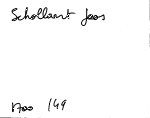 Schollaert Jaos
1700 149